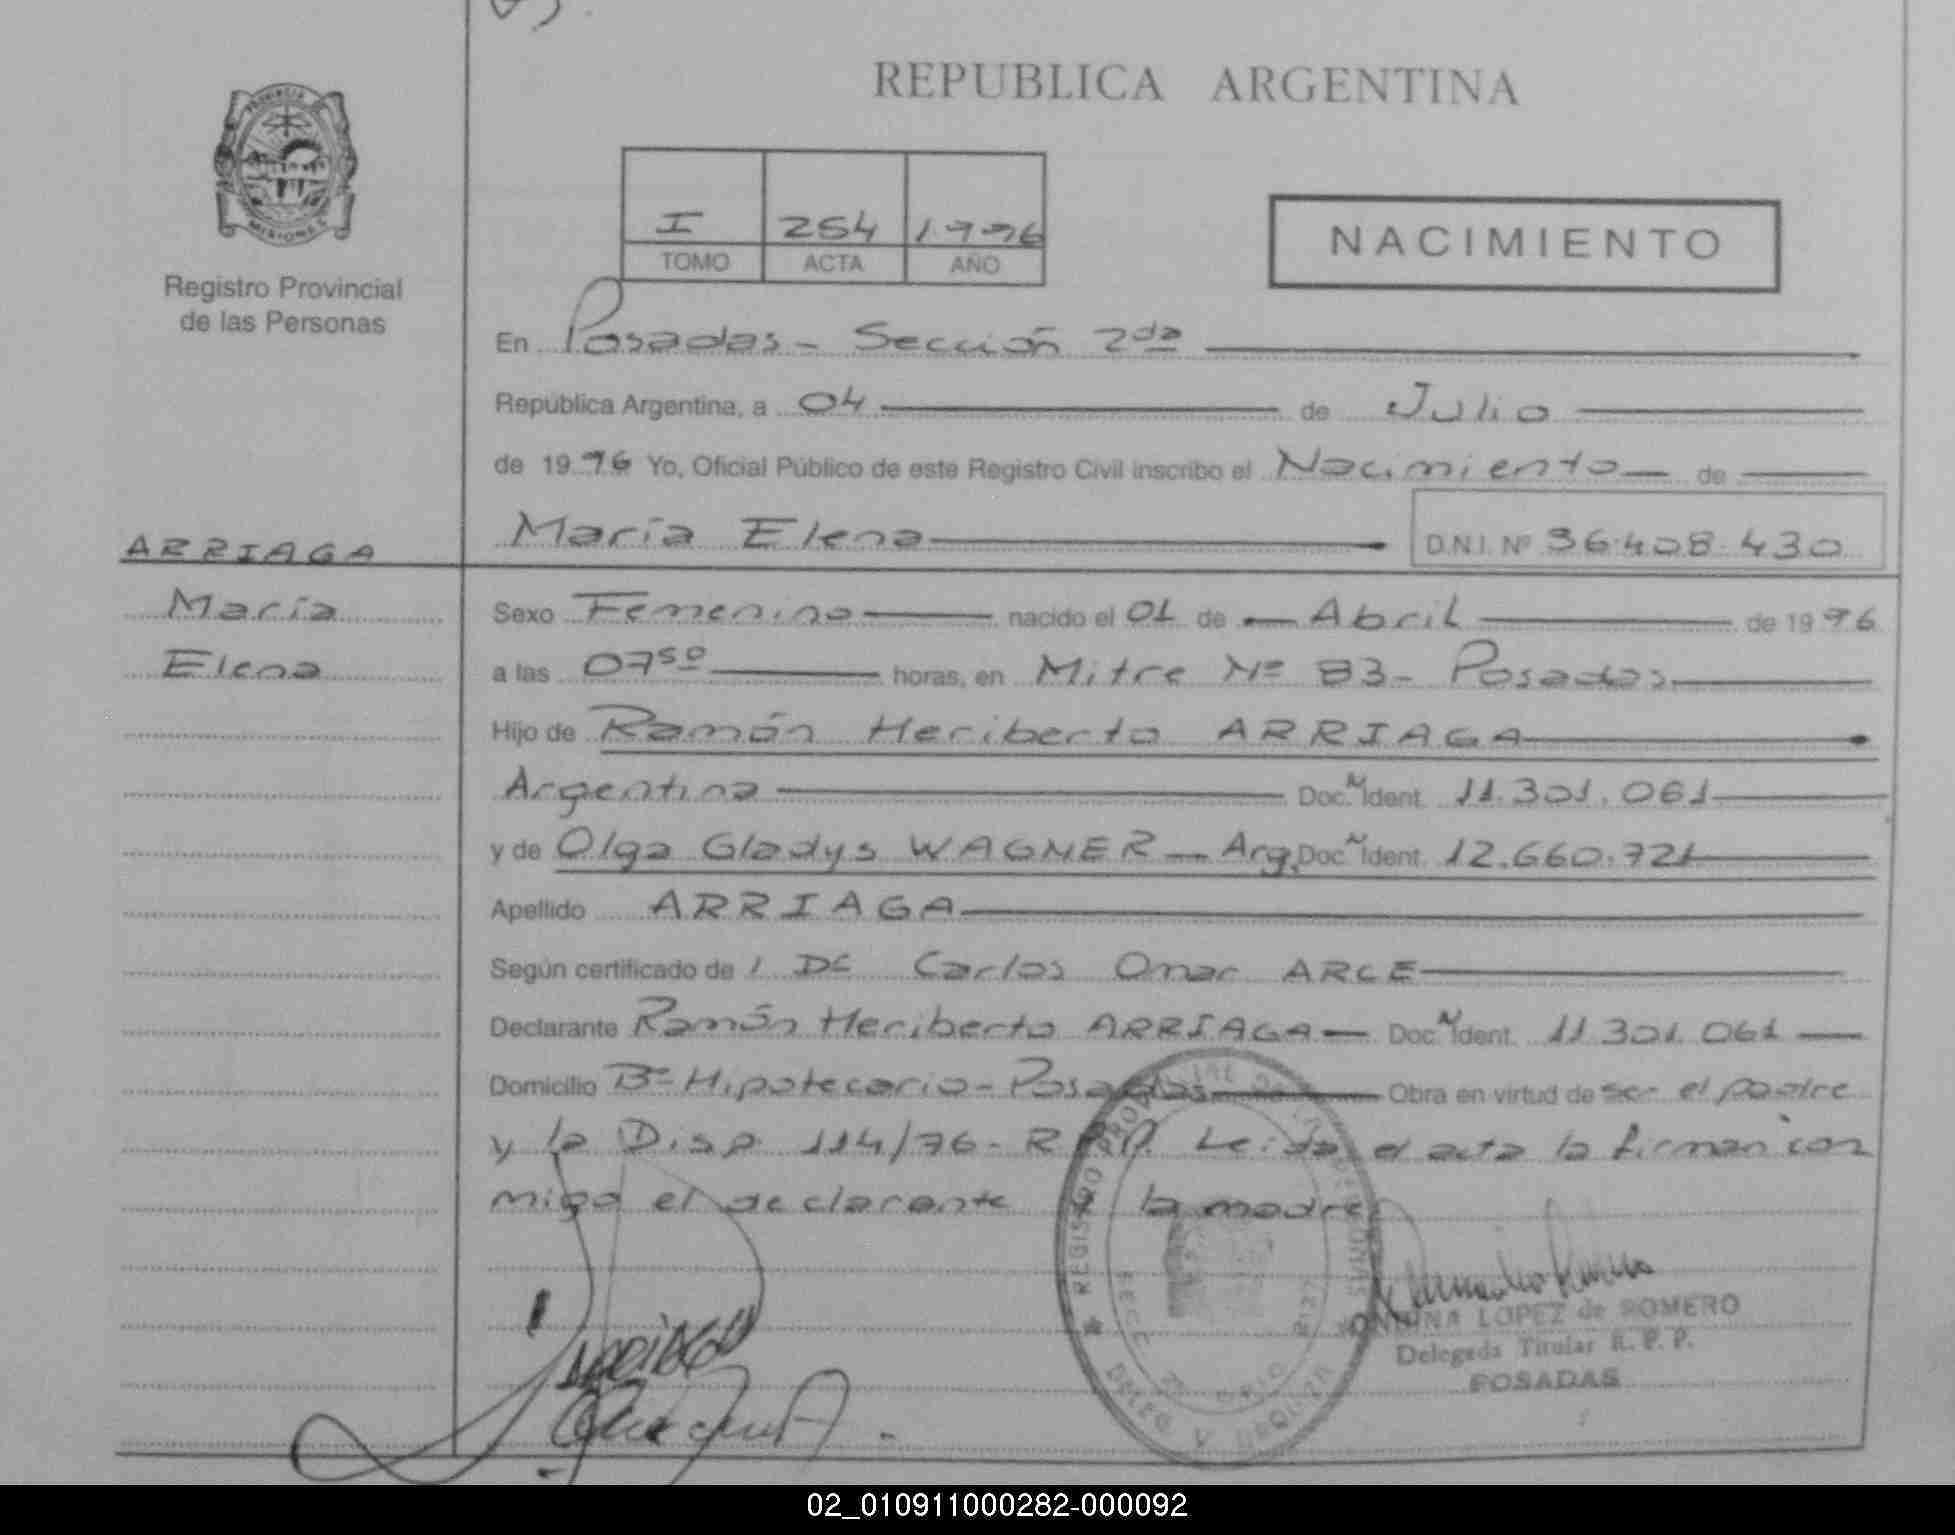 REPUBLICA ARGENTINA
PROVINCIA
MISIONES
Registro Provincial
de las Personas
I 254 1996
TOMO ACTA AÑO
NACIMIENTO
En Posadas - Sección 2da
República Argentina, a 04 de Julio
de 1996 Yo, Oficial Público de este Registro Civil inscribo el Nacimiento de
María Elena D.N.I. Nº 36.408.430
ARRIAGA
María
Elena
Sexo Femenino nacido el 01 de Abril de 1996
a las 07⁵⁰ horas, en Mitre Nº 83 - Posadas
Hijo de Ramón Heriberto ARRIAGA
Argentina Doc. Ident. 11.301.061
y de Olga Gladys WAGNER - Arg. Doc. Ident. 12.660.721
Apellido ARRIAGA
Según certificado de Carlos Omar ARCE
Declarante Ramón Heriberto ARRIAGA - Doc. Ident. 11.301.061
Domicilio Bº Hipotecario - Posadas Obra en virtud de ser el padre
y la Disp. 114/96 - R.P.P. Leída el acta la firman con
migo el declarante y la madre
REGISTRO PROVINCIAL DE LAS PERSONAS
LOPEZ de ROMERO
Delegada Titular R. P. P.
POSADAS
02_010911000282-000092